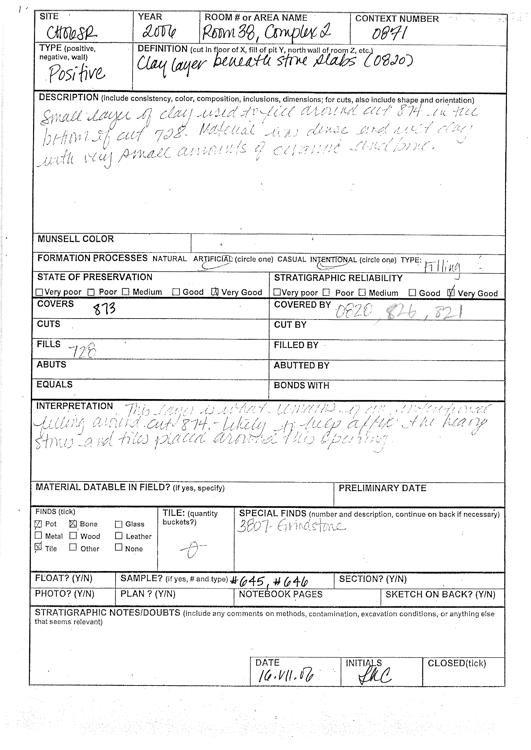 SITE YEAR ROOM # or AREA NAME CONTEXT NUMBER
CH06SR 2006 Room 38, Complex 2 0871
TYPE (positive, negative, wall) DEFINITION (cut in floor of X, fill of pit Y, north wall of room Z, etc.)
Positive Clay layer beneath stone slabs (0820)
DESCRIPTION (include consistency, color, composition, inclusions, dimensions; for cuts, also include shape and orientation)
Small layer of clay used to fill around cut 874 in the
bottom of cut 728. Material was dense and wet clay
with very small amounts of ceramic and bone.
MUNSELL COLOR
FORMATION PROCESSES NATURAL ARTIFICIAL (circle one) CASUAL INTENTIONAL (circle one) TYPE: Filling
STATE OF PRESERVATION STRATIGRAPHIC RELIABILITY
Very poor Poor Medium Good Very Good Very poor Poor Medium Good Very Good
COVERS 873 COVERED BY 0820, 826, 821
CUTS CUT BY
FILLS 728 FILLED BY
ABUTS ABUTTED BY
EQUALS BONDS WITH
INTERPRETATION This layer is what remains of an intentional
filling around cut 874 - likely to help affix the heavy
stones and tiles placed around this opening.
MATERIAL DATABLE IN FIELD? (if yes, specify) PRELIMINARY DATE
FINDS (tick) TILE: (quantity buckets?) SPECIAL FINDS (number and description, continue on back if necessary)
Pot Bone Glass 3807- Grindstone
Metal Wood Leather
Tile Other None
FLOAT? (Y/N) SAMPLE? (if yes, # and type) #645, #646 SECTION? (Y/N)
PHOTO? (Y/N) PLAN ? (Y/N) NOTEBOOK PAGES SKETCH ON BACK? (Y/N)
STRATIGRAPHIC NOTES/DOUBTS (include any comments on methods, contamination, excavation conditions, or anything else
that seems relevant)
DATE INITIALS CLOSED(tick)
16.VII.06